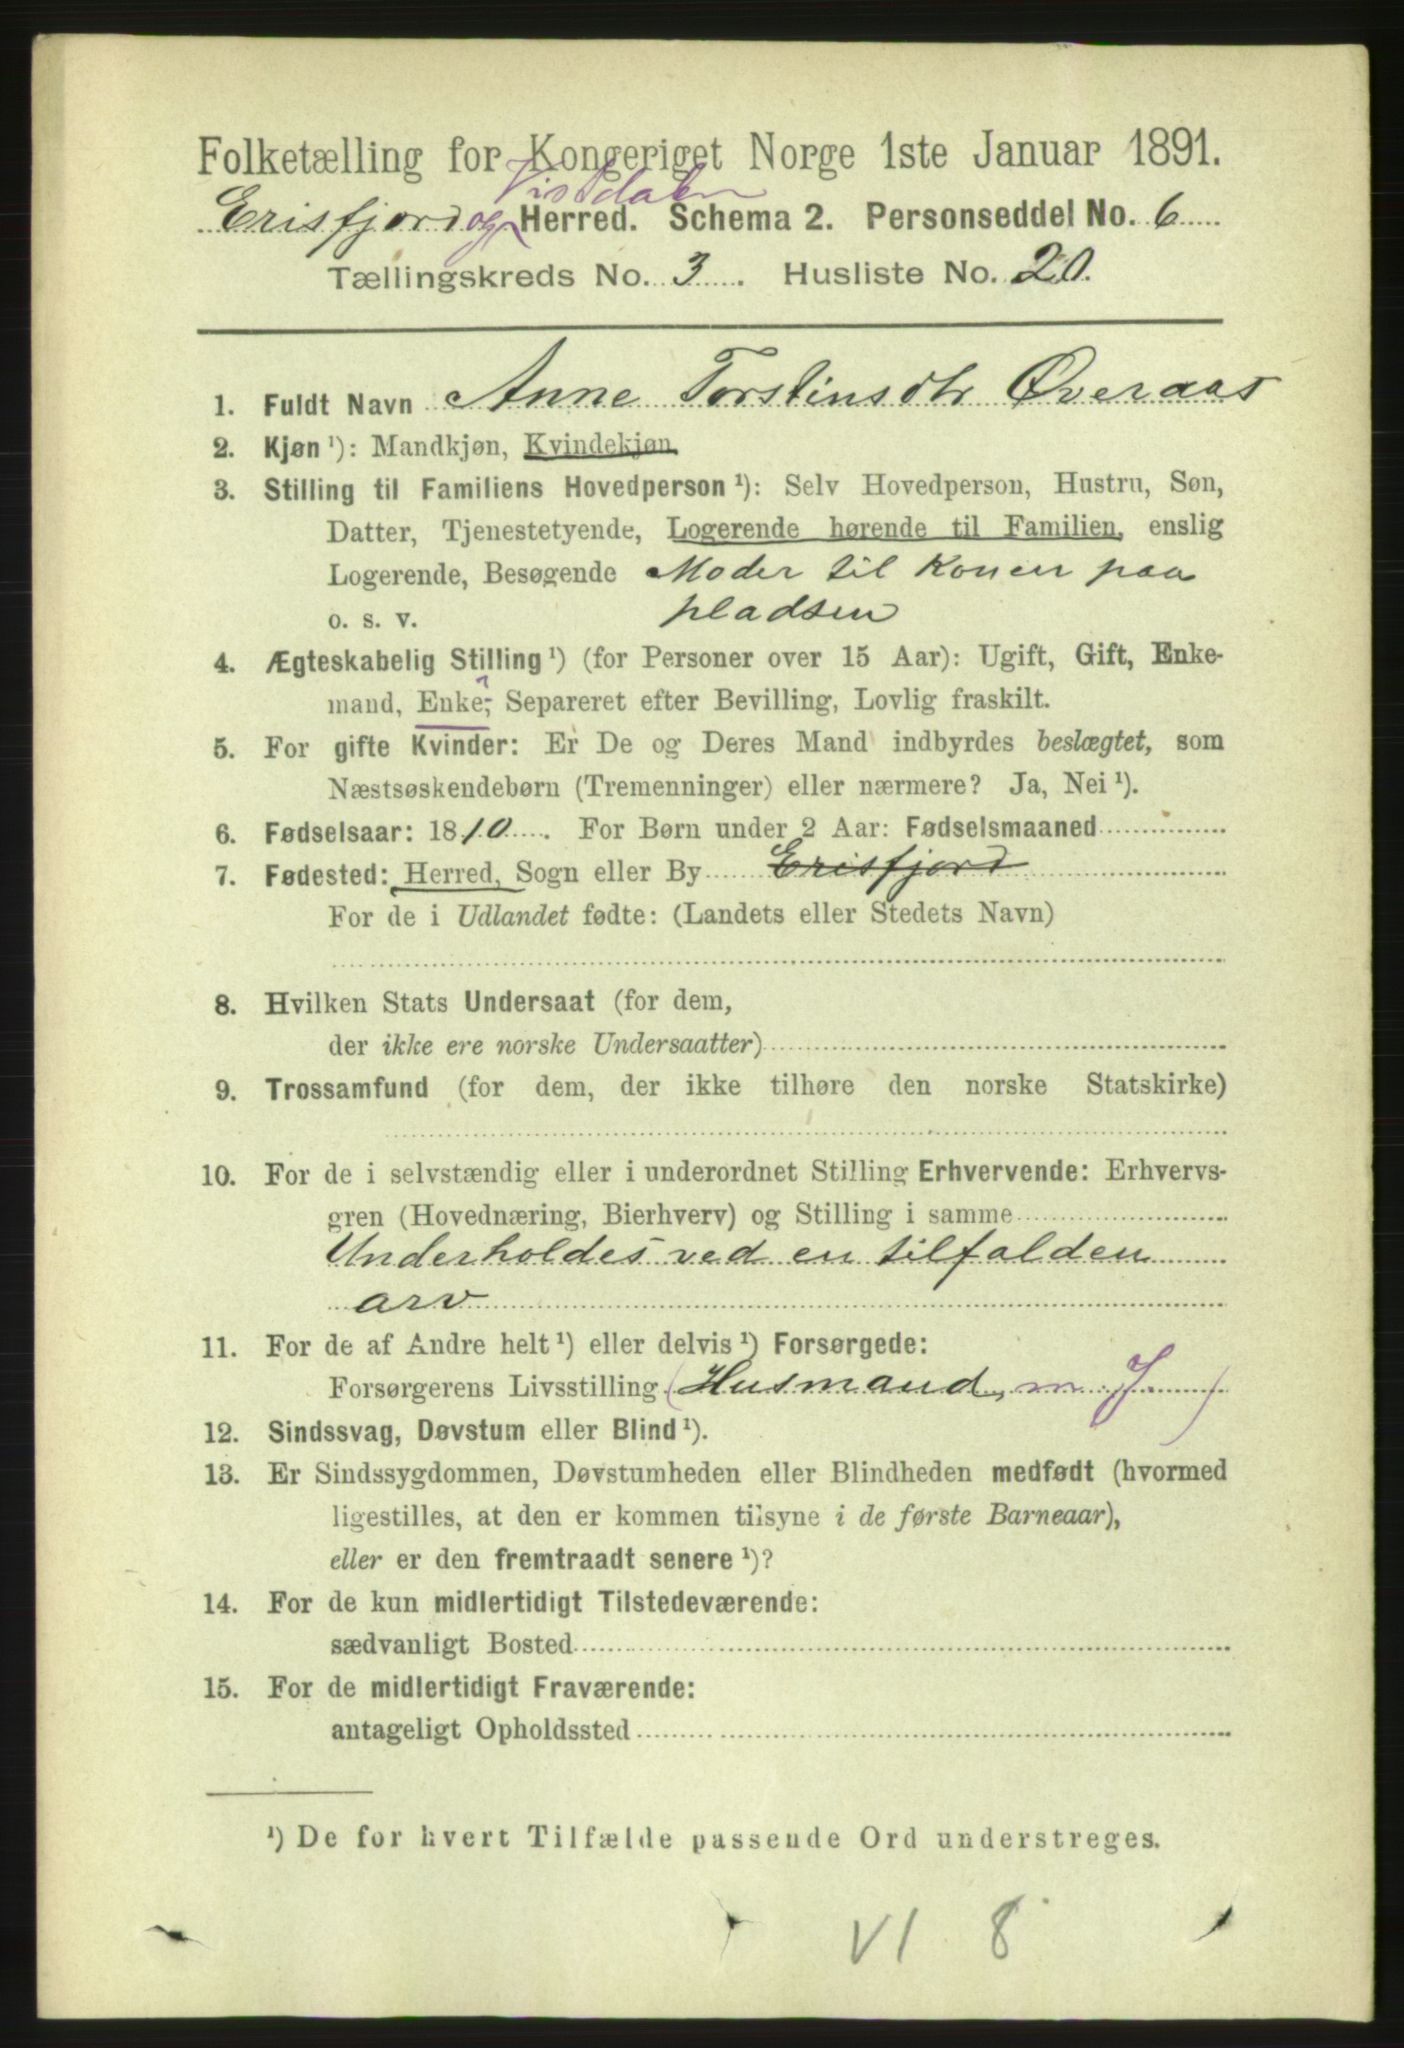 Folketælling for Kongeriget Norge 1ste Januar 1891.
Erisfjord og Vistdalen Herred. Schema 2. Personseddel No. 6
Tællingskreds No. 3. Husliste No. 20
1. Fuldt Navn Anne Torstinsdtr Øveraas
2. Kjøn ¹): Mandkjøn, Kvindekjøn
3. Stilling til Familiens Hovedperson ¹): Selv Hovedperson, Hustru, Søn,
Datter, Tjenestetyende, Logerende hørende til Familien, enslig
Logerende, Besøgende Moder til Konen paa
o. s. v. pladsen
4. Ægteskabelig Stilling ¹) (for Personer over 15 Aar): Ugift, Gift, Enke-
mand, Enke, Separeret efter Bevilling, Lovlig fraskilt.
5. For gifte Kvinder: Er De og Deres Mand indbyrdes beslægtet, som
Næstsøskendebørn (Tremenninger) eller nærmere? Ja, Nei ¹).
6. Fødselsaar: 1810. For Børn under 2 Aar: Fødselsmaaned
7. Fødested: Herred, Sogn eller By Erisfjord
For de i Udlandet fødte: (Landets eller Stedets Navn)
8. Hvilken Stats Undersaat (for dem,
der ikke ere norske Undersaatter)
9. Trossamfund (for dem, der ikke tilhøre den norske Statskirke)
10. For de i selvstændig eller i underordnet Stilling Erhvervende: Erhvervs-
gren (Hovednæring, Bierhverv) og Stilling i samme
Underholdes ved en tilfalden
arv
11. For de af Andre helt ¹) eller delvis ¹) Forsørgede:
Forsørgerens Livsstilling (Husmand, m. J)
12. Sindssvag, Døvstum eller Blind ¹).
13. Er Sindssygdommen, Døvstumheden eller Blindheden medfødt (hvormed
ligestilles, at den er kommen tilsyne i de første Barneaar),
eller er den fremtraadt senere ¹)?
14. For de kun midlertidigt Tilstedeværende:
sædvanligt Bosted
15. For de midlertidigt Fraværende:
antageligt Opholdssted
¹) De for hvert Tilfælde passende Ord understreges.
VI 8